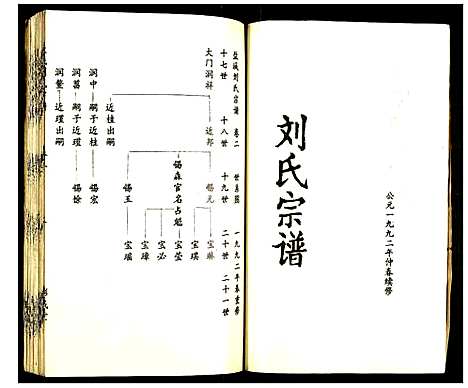 公元一九九二年仲春续修
刘氏宗谱
盐城刘氏宗谱 卷二 世系图 一九九二年春重修
十七世 十八世 十九世 二十世 二十一世
大门润祥 近邦 锡元 宝琳
宝琪
锡森官名占魁 宝莹
宝必
宝璋
锡玉 宝瑶
近桂出嗣
润中 嗣子近桂 锡宏
润菖 嗣子近瑾 锡馀
润鳌 近瑾出嗣